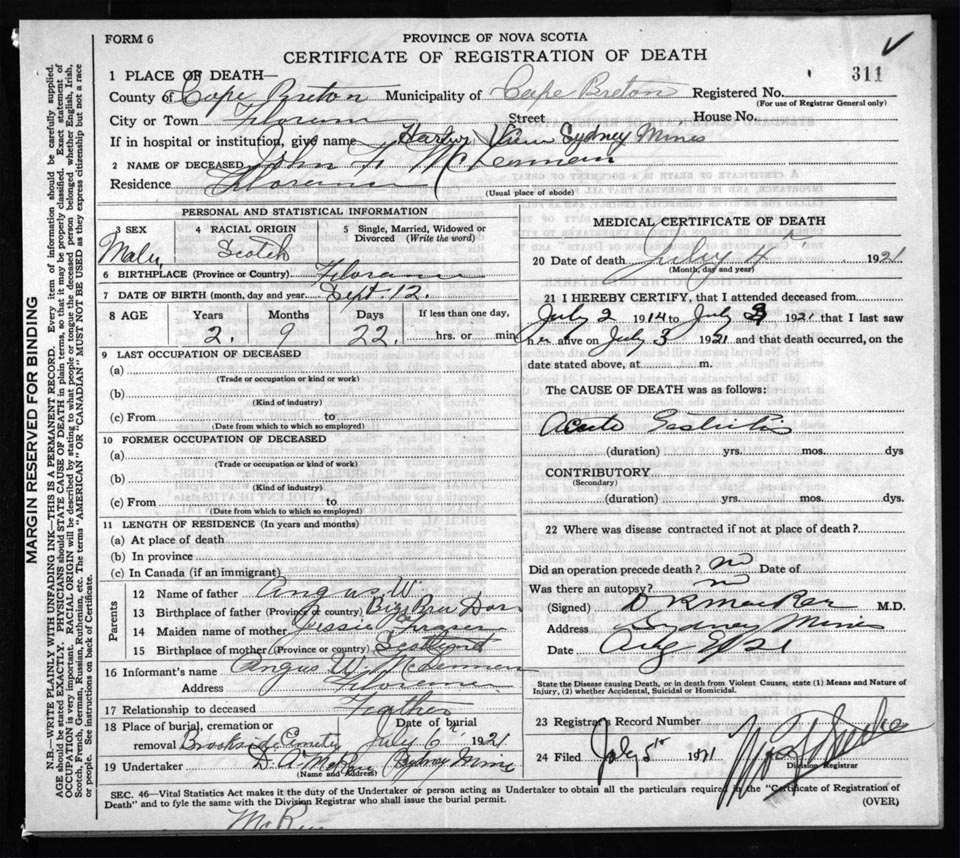 FORM 6
PROVINCE OF NOVA SCOTIA
CERTIFICATE OF REGISTRATION OF DEATH
311
1 PLACE OF DEATH—
County of Cape Breton Municipality of Cape Breton Registered No.
(For use of Registrar General only)
City or Town Florence Street House No.
If in hospital or institution, give name Harbor View Sydney Mines
2 NAME OF DECEASED John
Residence Florence
(Usual place of abode)
PERSONAL AND STATISTICAL INFORMATION
3 SEX Male
4 RACIAL ORIGIN Scotch
5 Single, Married, Widowed or Divorced (Write the word)
6 BIRTHPLACE (Province or Country) Florence
7 DATE OF BIRTH (month, day and year) Sept. 12.
8 AGE Years Months Days If less than one day,
2. 9 22. hrs. or min
9 LAST OCCUPATION OF DECEASED
(a)
(Trade or occupation or kind or work)
(b)
(Kind of industry)
(c) From to
(Date from which to which so employed)
10 FORMER OCCUPATION OF DECEASED
(a)
(Trade or occupation or kind of work)
(b)
(Kind of industry)
(c) From to
(Date from which to which so employed)
11 LENGTH OF RESIDENCE (In years and months)
(a) At place of death
(b) In province
(c) In Canada (if an immigrant)
Parents
12 Name of father Angus W.
13 Birthplace of father (Province or country) Big Bras Dor
14 Maiden name of mother Jessie Fraser
15 Birthplace of mother (Province or country) Scotland
16 Informant's name Angus W.
Address Florence
17 Relationship to deceased Father
18 Place of burial, cremation or removal Brookside Cemetery Date of burial July 6 1921
19 Undertaker D. A. Sydney Mines
(Name and Address)
MEDICAL CERTIFICATE OF DEATH
20 Date of death July 4 1921
(Month, day and year)
21 I HEREBY CERTIFY, that I attended deceased from
July 2 1914 to July 3 1921 that I last saw
alive on July 3 1921 and that death occurred, on the
date stated above, at m.
The CAUSE OF DEATH was as follows:
Acute
(duration) yrs. mos. dys
CONTRIBUTORY
(Secondary)
(duration) yrs. mos. dys.
22 Where was disease contracted if not at place of death?
Did an operation precede death? no Date of
Was there an autopsy? no
(Signed) M.D.
Address Sydney Mines
Date
State the Disease causing Death, or in death from Violent Causes, state (1) Means and Nature of
Injury, (2) whether Accidental, Suicidal or Homicidal.
23 Registrar's Record Number
24 Filed July 5th 1921
Division Registrar
SEC. 46—Vital Statistics Act makes it the duty of the Undertaker or person acting as Undertaker to obtain all the particulars required in the "Certificate of Registration of
Death" and to fyle the same with the Division Registrar who shall issue the burial permit.
(OVER)
MARGIN RESERVED FOR BINDING
N.B.—WRITE PLAINLY WITH UNFADING INK—THIS IS A PERMANENT RECORD. Every item of information should be carefully supplied.
AGE should be stated EXACTLY. PHYSICIANS should STATE CAUSE OF DEATH in plain terms, so that it may be properly classified. Exact statement of
OCCUPATION is very important. RACIAL ORIGIN will be described by stating to what people or tongue the deceased person belonged whether English, Irish,
Scotch, French, German, Russian, Ruthenian, etc. The terms "AMERICAN" OR "CANADIAN" MUST NOT BE USED as they express citizenship but not a race
or people. See instructions on back of Certificate.